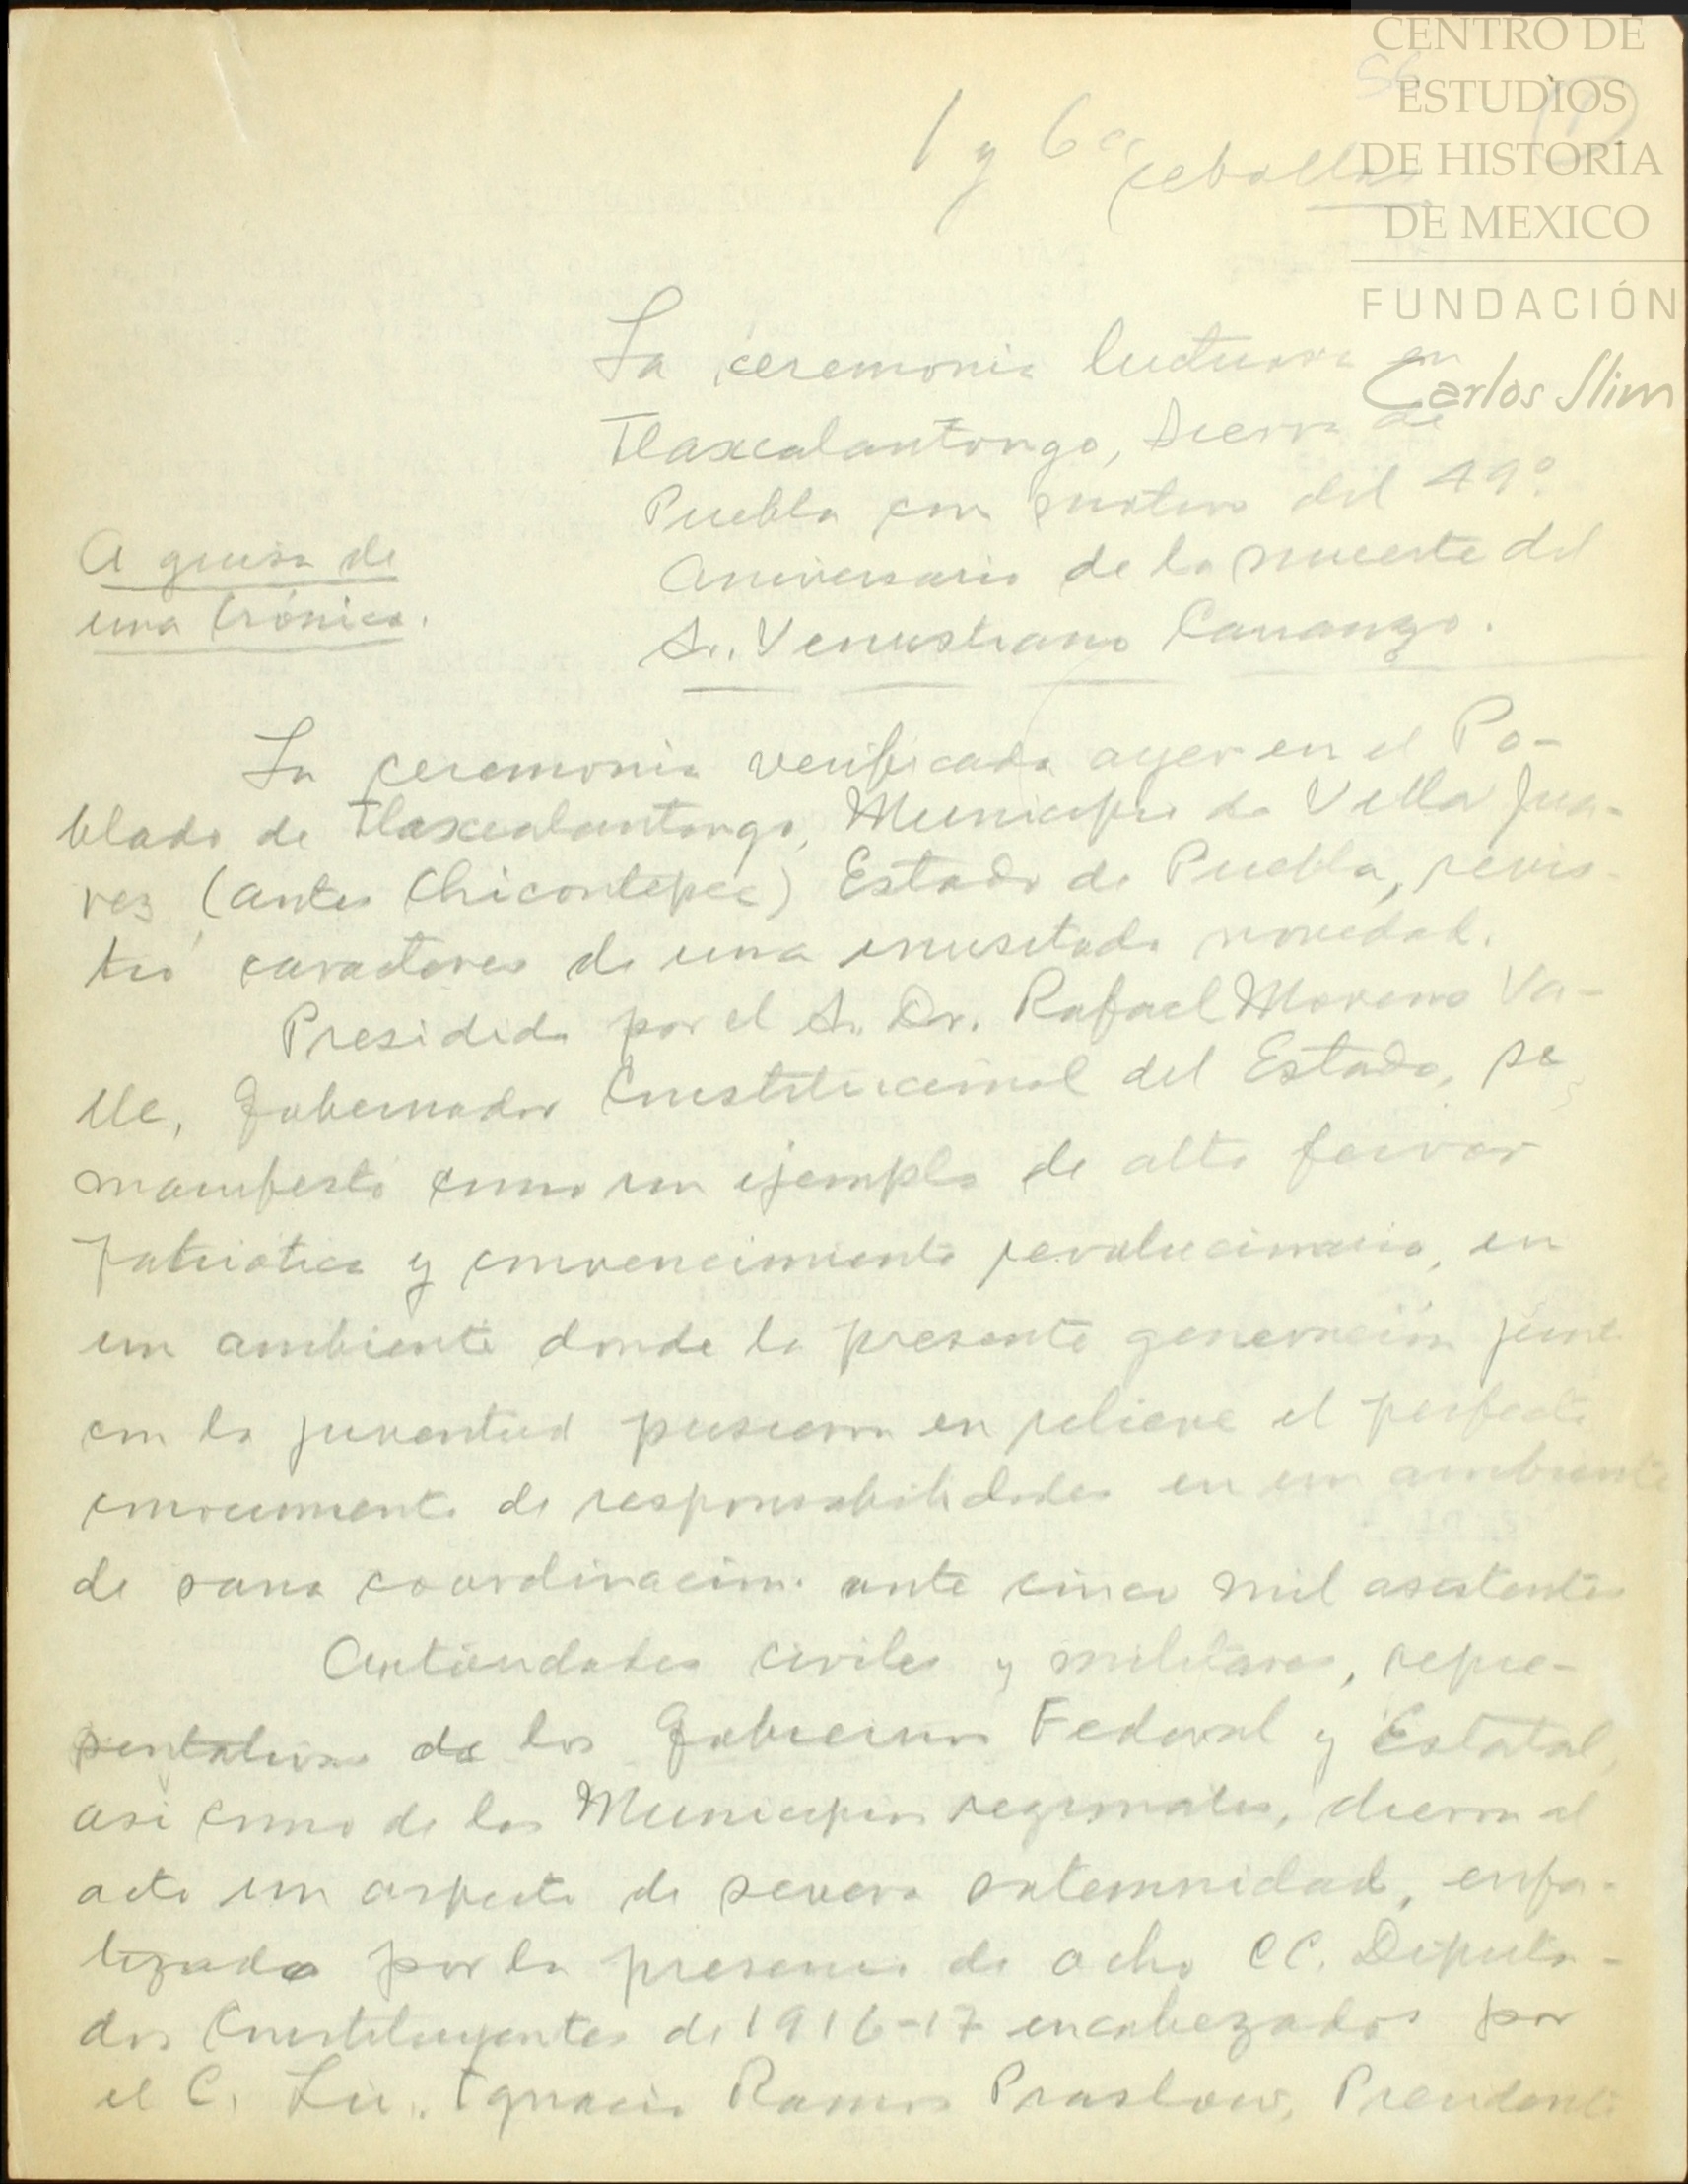 CENTRO DE
ESTUDIOS
DE HISTORIA
DE MEXICO
FUNDACIÓN
Carlos Slim
1 y 6
La ceremonia luctuosa en
Tlaxcalantongo, Sierra de
Puebla con motivo del 49°
Aniversario de la muerte del
Sr. Venustiano Carranza.
A guisa de
una Crónica.
La ceremonia verificada ayer en el Po-
blado de Tlaxcalantongo, Municipio de Villa Jua-
rez (antes Chicontepec) Estado de Puebla, revis-
tió caracteres de una inusitada novedad.
Presidida por el Sr. Dr. Rafael Moreno Va-
lle, Gobernador Constitucional del Estado, se
manifestó como un ejemplo de alto fervor
patriótico y convencimiento revolucionario, en
un ambiente donde la presente generación junto
con la juventud pusieron en relieve el perfecto
conocimiento de responsabilidades en un ambiente
de sana coordinación. ante cinco mil asistentes
Autoridades civiles y militares, repre-
sentativas de los Gobiernos Federal y Estatal,
asi como de los Municipios regionales, dieron al
acto un aspecto de severa solemnidad, enfa-
tizada por la presencia de ocho CC. Diputa-
dos Constituyentes de 1916-17 encabezados por
el C. Lic. Ignacio Ramos Praslow, Presidente